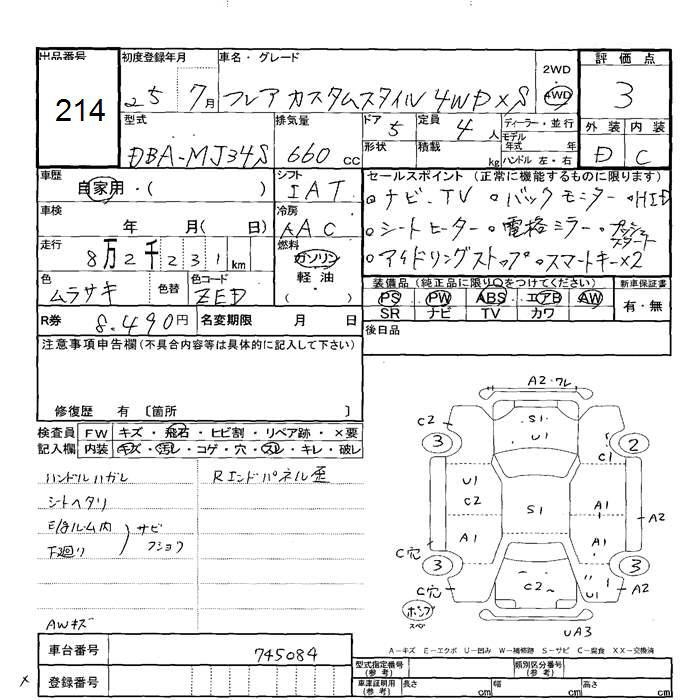 出品番号 初度登録年月 車名・グレード 2WD 評価点
214 25 7月 フレア カスタムスタイル 4WD XS 4WD 3
型式 排気量 ドア 5 定員 4人 ディーラー・並行 外装 内装
DBA-MJ34S 660cc 形状 積載 kg モデル年式 年式 ハンドル 左・右 D C
車歴 シフト セールスポイント (正常に機能するものに限ります)
自家用・( ) IAT ・ナビ、TV ・バックモニター ・HID
車検 冷房
年 月( 日) AAC ・シートヒーター ・電格ミラー ・プッシュスタート
走行 燃料
8万2千231km ガソリン 軽油 ・アイドリングストップ ・スマートキー×2
色 色替 色コード ・( ) 装備品(純正品に限り○をつけてください) 新車保証書
ムラサキ ZED PS PW ABS エアB AW 有・無
SR ナビ TV カワ
R券 8,490円 名変期限 月 日 後日品
注意事項申告欄(不具合内容等は具体的に記入して下さい)
修復歴 有 〔箇所 〕
検査員 FW キズ・飛石・ヒビ割・リペア跡・×要
記入欄 内装 キズ・汚レ・コゲ・穴・スレ・キレ・破レ
ハンドルハガレ Rエンドパネル歪
シートヘタリ
E/ルーム内
下廻り サビ フショク
AWキズ
A2・ワレ
C2 S1 U1
3 2
C1
U1 C2 S1 A1 A2
A1 A1
C穴
3 3
C穴 C2 U1 A2
ホンプ スペ
UA3
A-キズ E-エクボ U-凹み W-補修跡 S-サビ C-腐食 XX-交換済
車台番号 745084 型式指定番号(参考) 類別区分番号(参考)
× 登録番号 車庫証明用(参考) 長さ cm 幅 cm 高さ cm